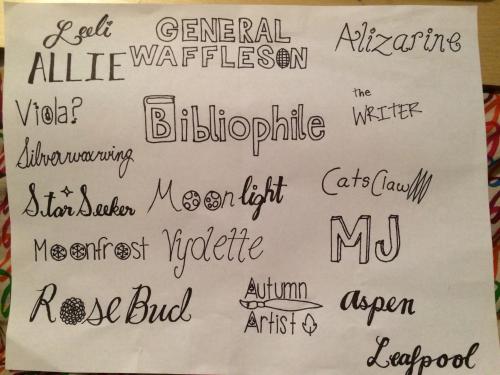 Leeli
ALLIE
GENERAL
WAFFLESON
Alizarine
Viola?
Bibliophile
the
WRITER
Silverwaxwing
Star Seeker
Moonlight
CatsClaw
Moonfrost
Vydette
MJ
Rose Bud
Autumn
Artist
aspen
Leafpool